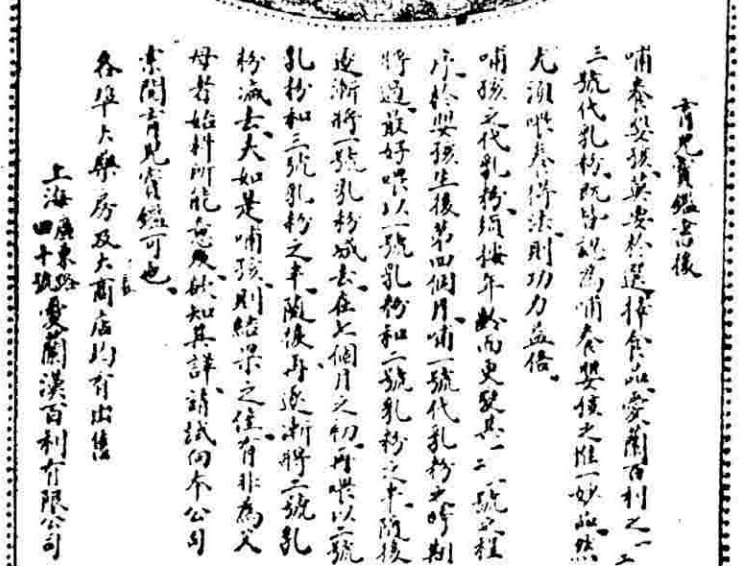 育兒寶鑑書後
哺養嬰孩、莫要於選擇食品、愛蘭百利之一二
三號代乳粉、既皆認為哺養嬰孩之惟一妙品、然
尤須喂養得法、則功力益倍。
哺孩之代乳粉、須按年齡而更變、其一二號之程
序、於嬰孩生後第四個月、哺一號代乳粉之時期
將過、最好喂以一號乳粉和二號乳粉之半、隨後
逐漸將一號乳粉減去、在七個月之初、再喂以二號
乳粉和三號乳粉之半、隨後再逐漸將二號乳
粉減去、夫如是哺孩、則結果之佳、有非為父
母者始料所能意及、欲知其詳、請試向本公司
索閱育兒寶鑑可也、
各埠大藥房及大商店均有出售
上海廣東路四十號愛蘭漢百利有限公司